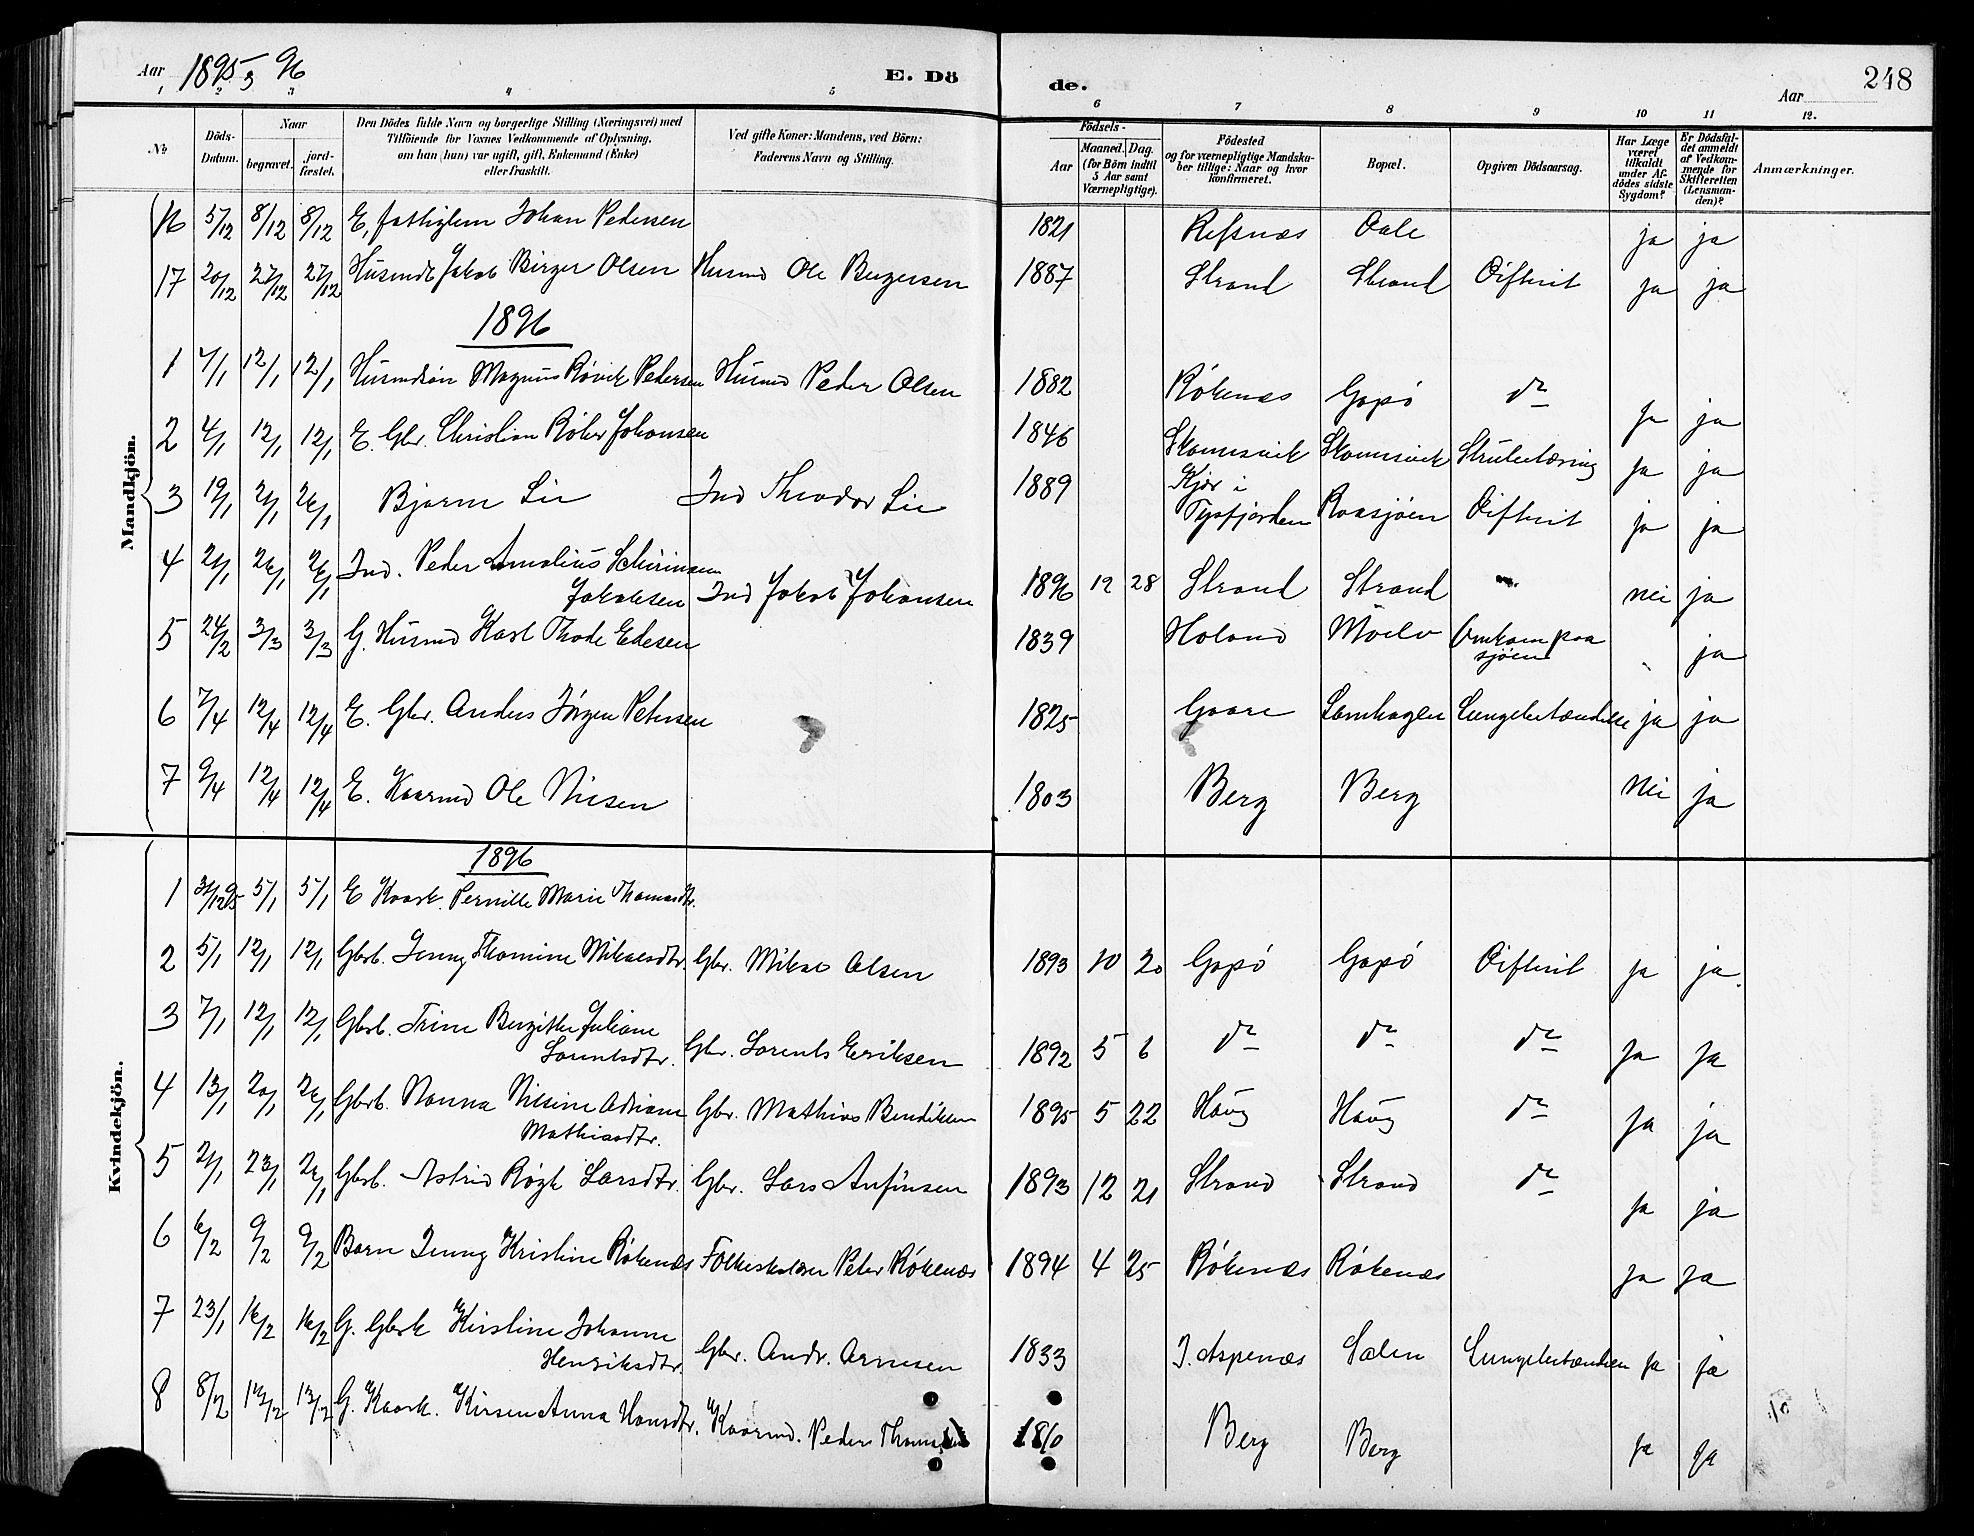 Aar 1895 3 96
E. Dö
de.
Aar
248
1 2 3 4 5 6 7 8 9 10 11 12.
№
Döds-
Datum.
Naar
begravet.
jord-
fæstet.
Den Dödes fulde Navn og borgerlige Stilling (Næringsvei) med
Tilföiende for Voxnes Vedkommende af Oplysning,
om han (hun) var ugift, gift, Enkemand (Enke)
eller fraskilt.
Ved gifte Koner: Mandens, ved Börn:
Faderens Navn og Stilling.
Födsels-
Aar
Maaned. Dag.
(for Börn indtil
5 Aar samt
Værnepligtige).
Födested
og for værnepligtige Mandska-
ber tillige: Naar og hvor
konfirmeret.
Bopæl.
Opgiven Dödsaarsag.
Har Læge
været
tilkaldt
under Af-
dödes sidste
Sygdom?
Er Dödsfal-
det anmeldt
af Vedkom-
mende for
Skifteretten
(Lensman-
den)?
Anmærkninger.
Mandkjön.
16 5/12 8/12 8/12 E, fattiglem Johan Pedersen 1821 Refsnæs ja ja
17 20/12 27/12 27/12 Jakob Birger Olsen Husmd Ole Bergersen 1887 Strand Strand Difterit ja ja
1896
1 12/1 12/1 Husmdsön Magnus Rövik Pedersen Husmd Peder Olsen 1882 Rökenæs Gapö do ja ja
2 4/1 12/1 12/1 E. Gbr. Christian Johansen 1846 Skommsvik Skommsvik Strubetæring ja ja
3 19/1 26/1 Bjarne Lie Ind Theodor Lie 1889 Kjör i
Tysfjorden Difterit ja ja
4 26/1 26/1 Ind. Peder Amolius
Jakobsen Ind Jakob Johansen 1896 12 28 Strand Strand nei ja
5 24/2 3/3 3/3 G. Husmd Karl Thode Edesen 1839 Holand Omkom paa
sjöen ja
6 7/4 12/4 12/4 E. Gbr. Anders Jörgen Petersen 1825 Gaare Lungebetændelse ja ja
7 9/4 12/4 12/4 E. Kaarmd Ole Nilsen 1803 Berg Berg nei ja
Kvindekjön.
1896
1 31/12 95 5/1 5/1 E Kaark. Pernille Marie Thomasdtr.
2 5/1 12/1 12/1 Gbrb. Jenny Thomine Mikalsdtr. Gbr. Mikal Olsen 1893 10 20 Gapö Gapö Difterit ja ja
3 7/1 12/1 12/1 Gbrb. Trine Bergithe Juliane
Lorentsdtr. Gbr. Lorents Eriksen 1892 5 6 do do do ja ja
4 13/1 20/1 26/1 Gbrb. Nanna Nilsine Adriane
Mathiasdtr. Gbr. Mathias Bendiksen 1895 5 22 Haug Haug do ja ja
5 21/1 23/1 26/1 Gbrb. Astrid Larsdtr. Gbr. Lars Anfinsen 1893 12 21 Strand Strand do ja ja
6 6/2 9/2 9/2 Barn Jenny Kristine Rökenæs Folkeskolelærer Peter Rökenæs 1894 4 25 Rökenæs Rökenæs ja ja
7 23/1 16/2 16/2 G. Gbrk Kirstine Johanne
Henriksdtr. Gbr. Andr. Arnesen 1833 I. Aspenæs Salen Lungebetændelsen ja ja
8 8/2 13/2 G. Kaark. Kirsen Anna Hansdtr. Kaarmd. Peder Thomassen 1810 Berg Berg ja ja